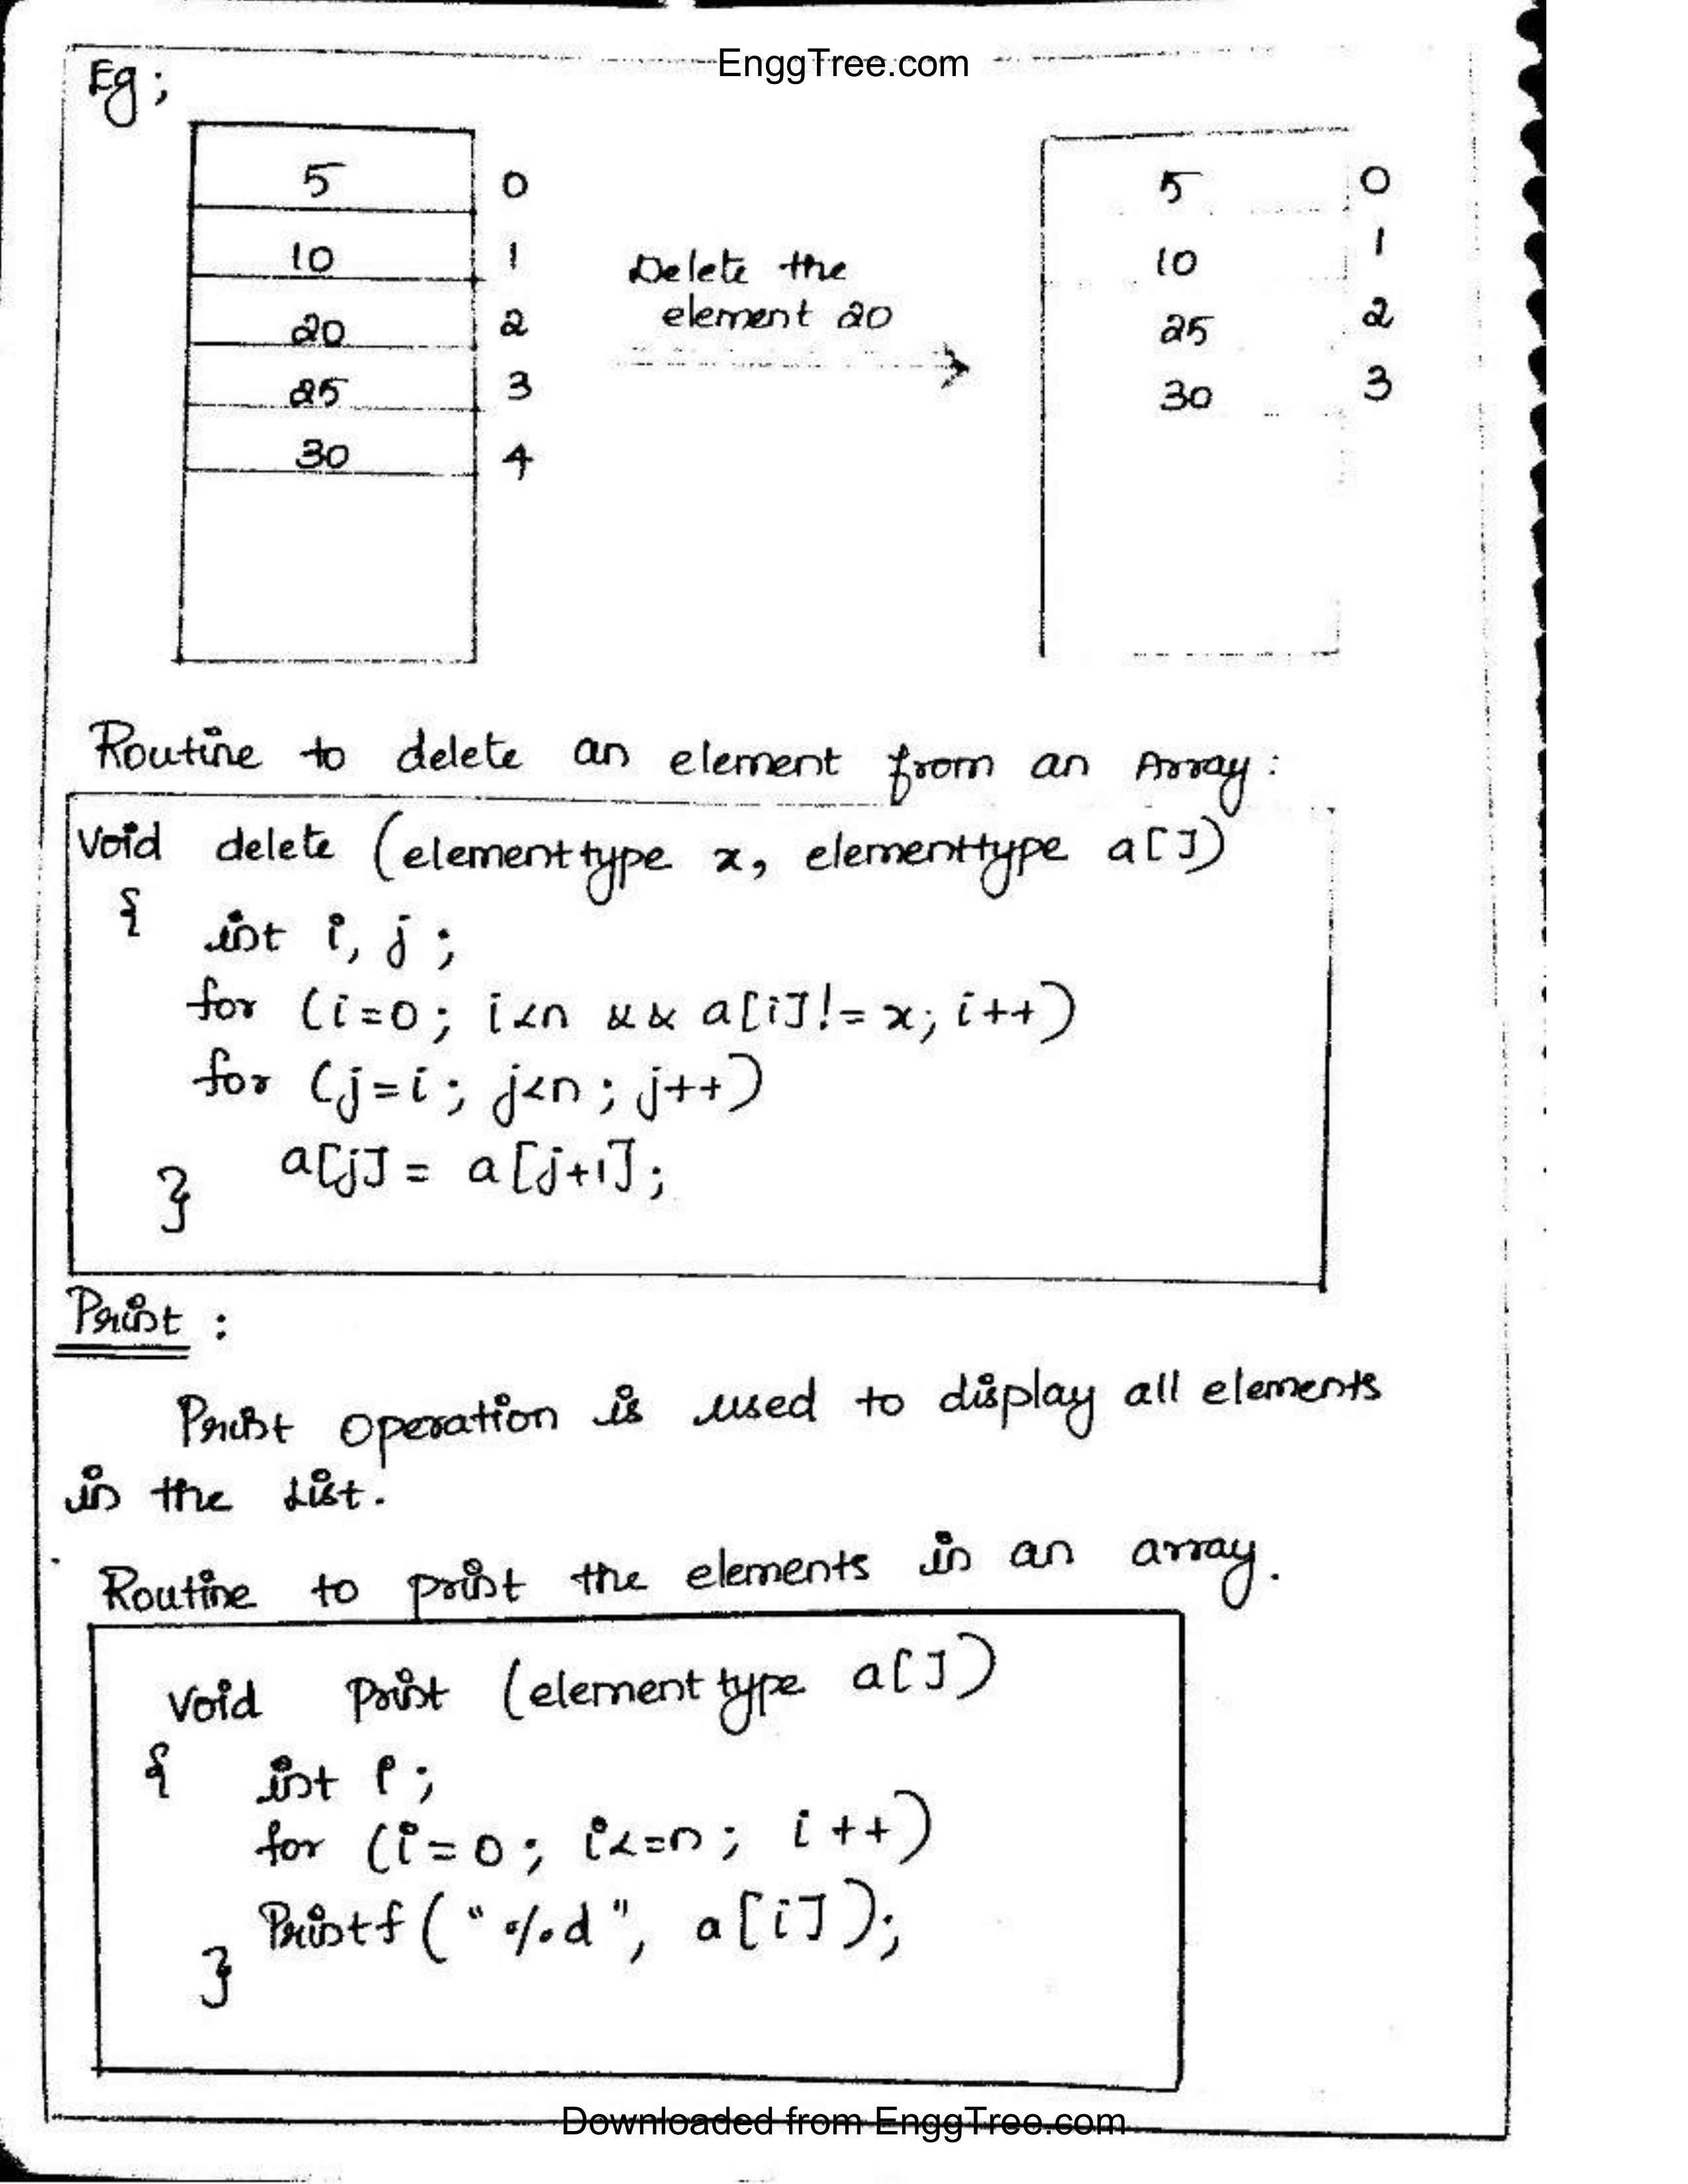 EnggTree.com
Eg;
5 0
10 1
20 2
25 3
30 4
Delete the
element 20
5 0
10 1
25 2
30 3
Routine to delete an element from an Array:
Void delete (elementtype x, elementtype a[])
{ int i, j;
for (i=0; i<n && a[i]!=x; i++)
for (j=i; j<n; j++)
a[j] = a[j+1];
}
Print :
Print operation is used to display all elements
in the List.
Routine to print the elements in an array.
void Print (elementtype a[])
{ int i;
for (i=0; i<=n; i++)
Printf("%d", a[i]);
}
Downloaded from EnggTree.com